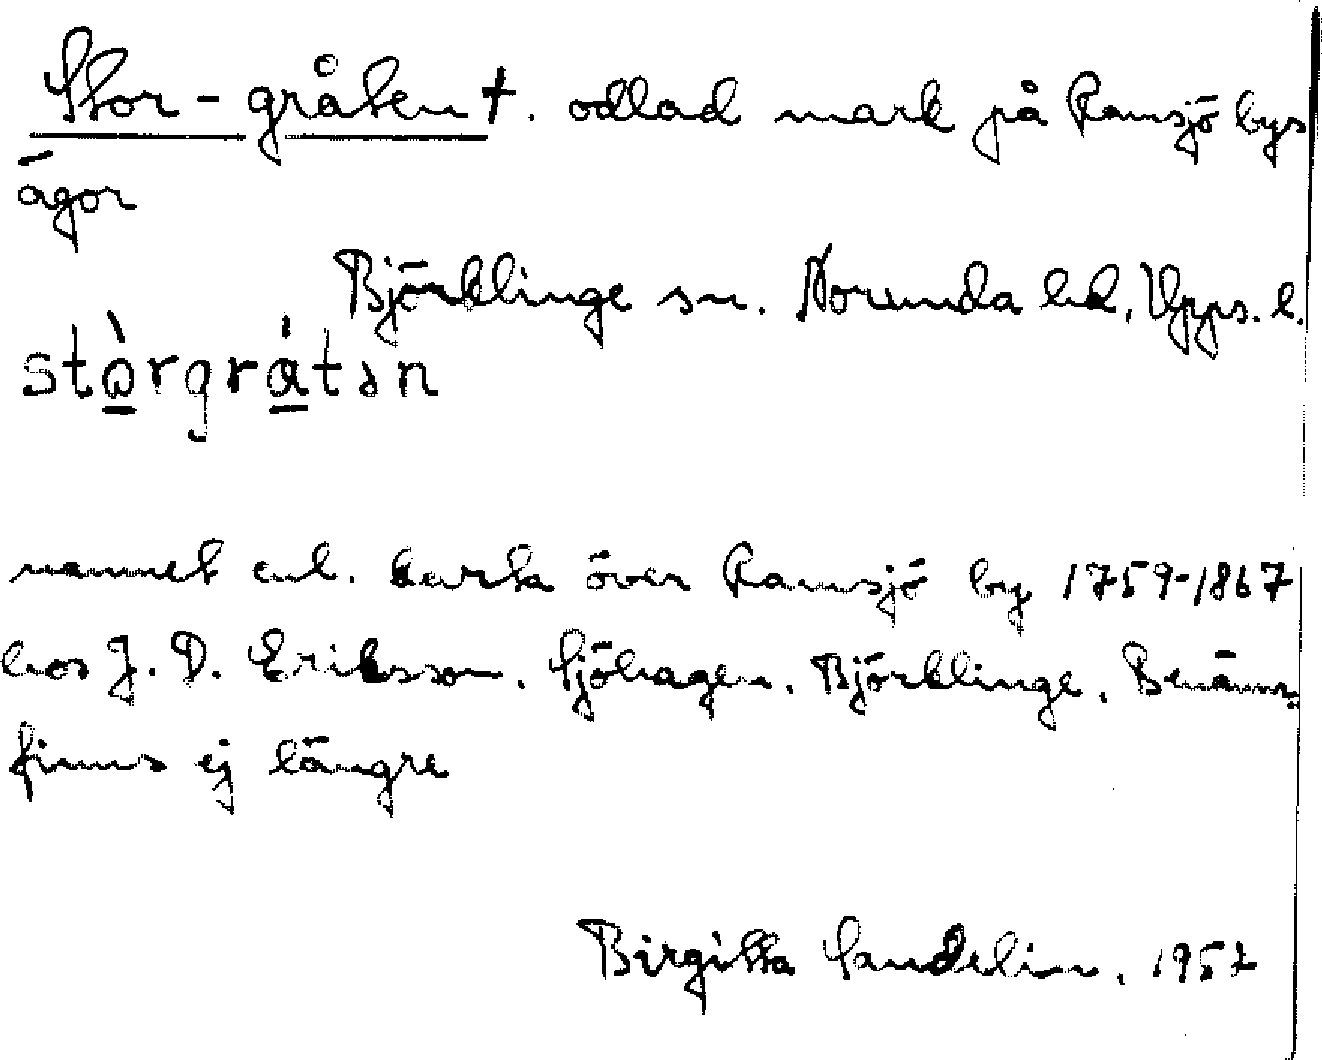 Stor-gråten †. odlad mark på Ramsjö bys
ägor
Björklinge sn. Norunda hd, Upps. l.
stòrgrátən
namnet enl. karta över Ramsjö by 1759-1867
hos J. D. Eriksson. Sjöhagen. Björklinge. Benämn.
finns ej längre
Birgitta Sandelin. 1957